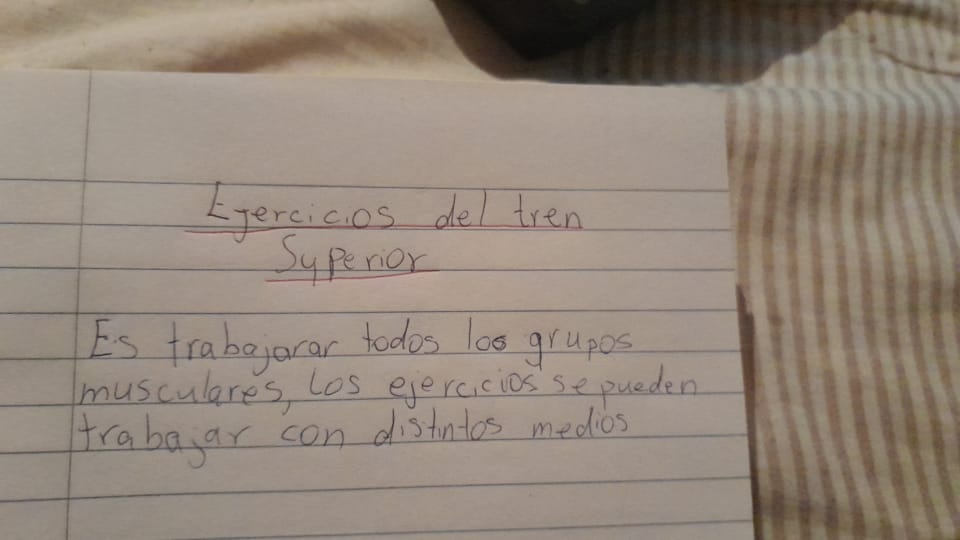 Ejercicios del tren
Superior
Es trabajarar todos los grupos
musculares, los ejercicios se pueden
trabajar con distintos medios